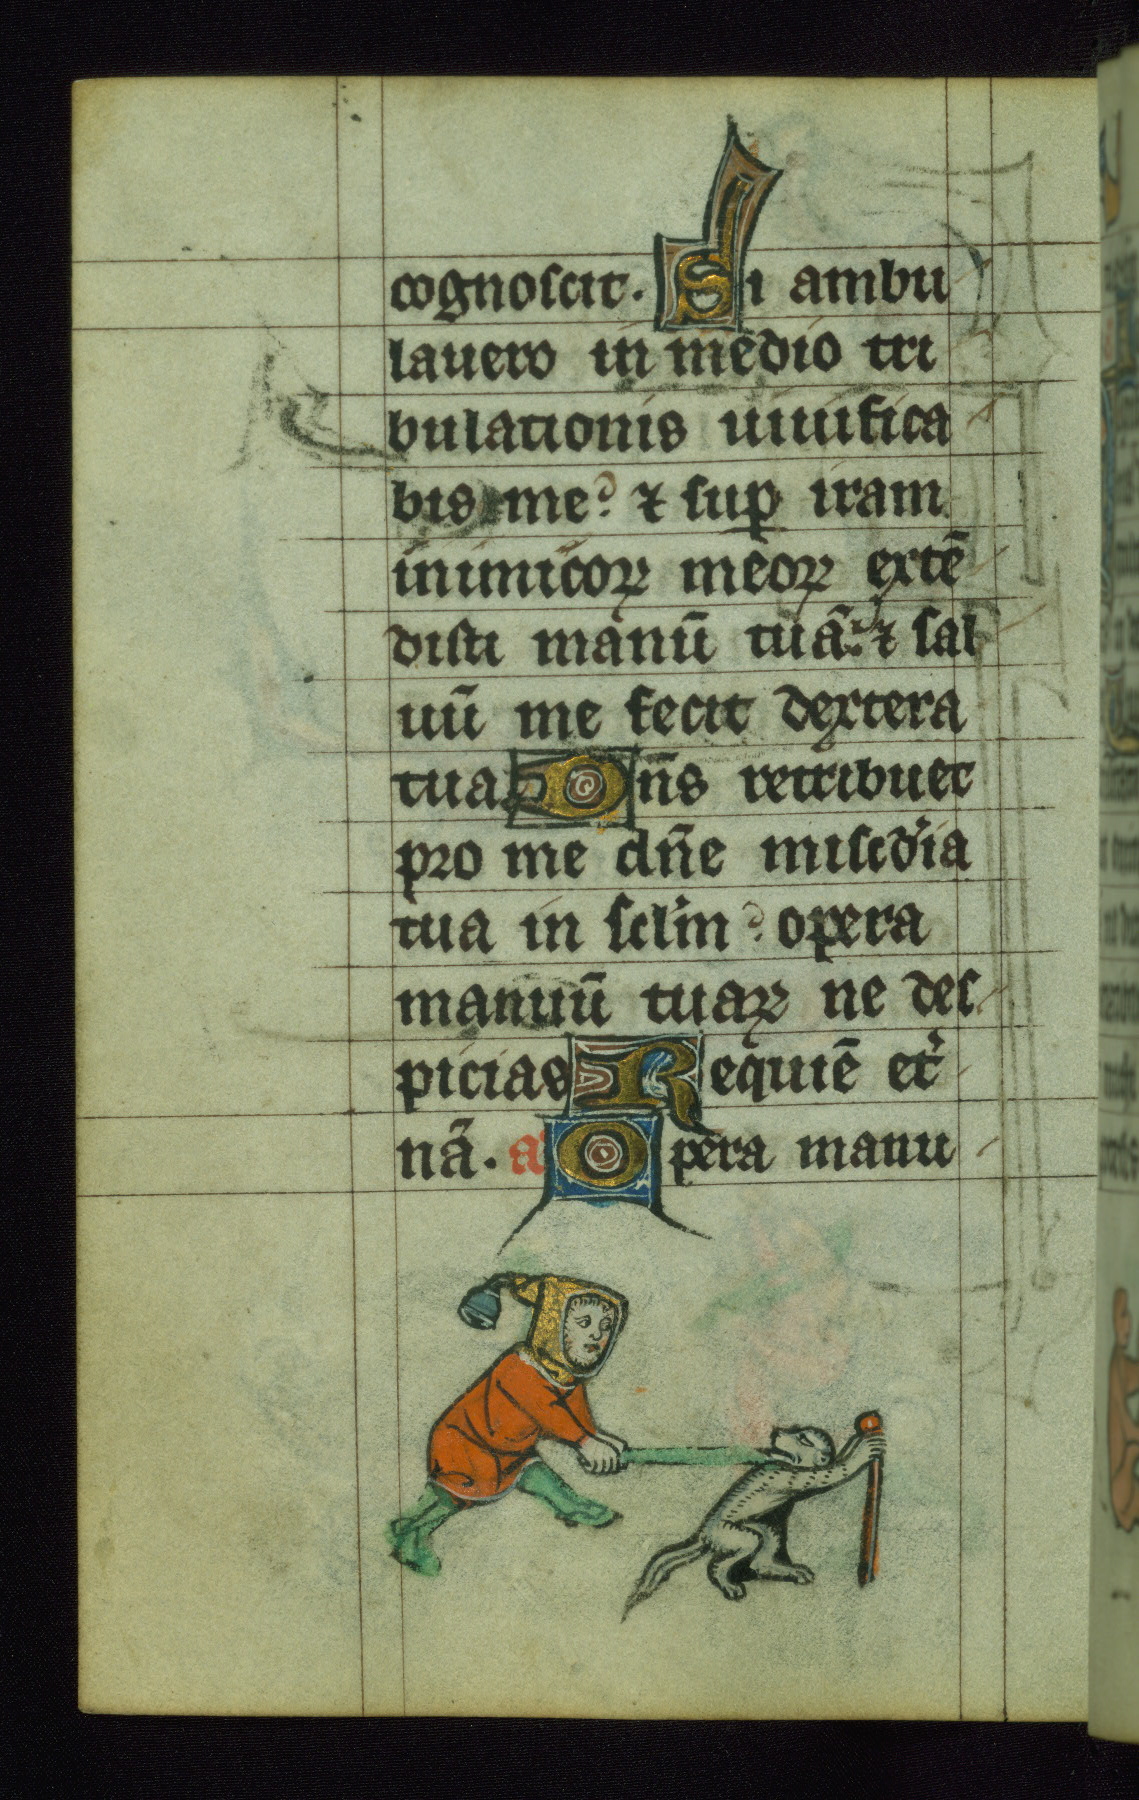 cognoscit. Si ambu
lauero in medio tri
bulationis uiuifica
bis me? ⁊ sup̱ iram
inimicoꝝ meoꝝ extē
disti manū tuā: ⁊ sal
uū me fecit dextera
tua Dn̄s retribuet
pro me dn̄e misc̄d'ia
tua in sc̄l'm? opera
manuū tuaꝝ ne des
picias Requiē et'
nā. a' Opera manu